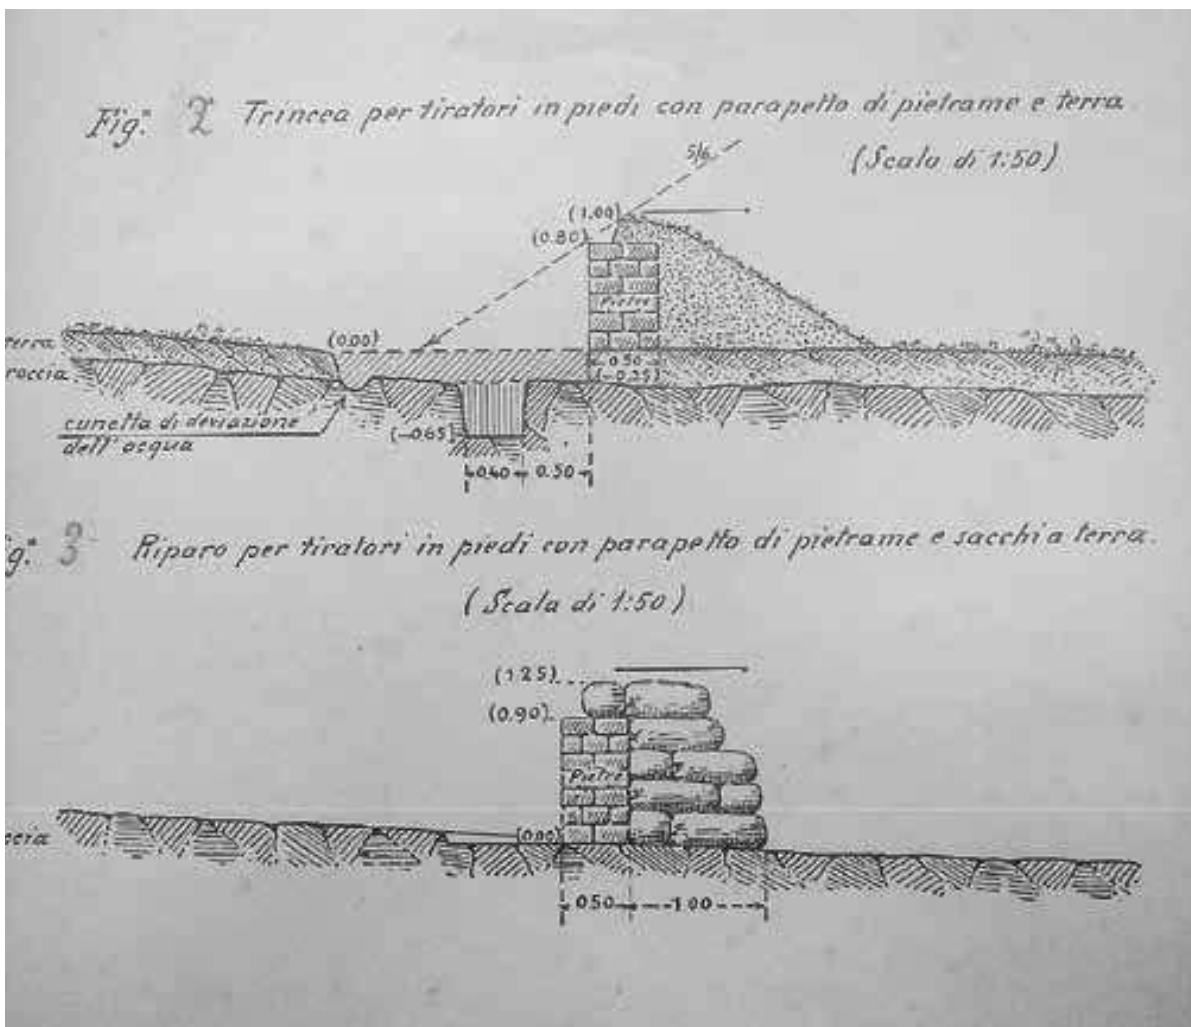 Fig.ª 2 Trincea per tiratori in piedi con parapetto di pietrame e terra
(Scala di 1:50)
5/6
(1.00)
(0.80)
Pietre
terra
(0.00)
0.50
roccia
(-0.25)
cunetta di deviazione
dell'acqua
(-0.65)
0.40 0.50
ig.ª 3 Riparo per tiratori in piedi con parapetto di pietrame e sacchi a terra.
(Scala di 1:50)
(1.25)
(0.90)
Pietre
(0.00)
ccia
0.50 1.00